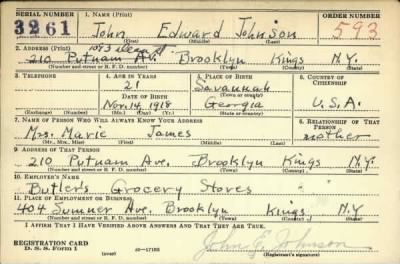 SERIAL NUMBER 1. NAME (Print) ORDER NUMBER
3261 John Edward Johnson 593
(First) (Middle) (Last)
2. ADDRESS (Print) 1043 Dean St.
210 Putnam Av. Brooklyn Kings N.Y.
(Number and street or R. F. D. number) (Town) (County) (State)
3. TELEPHONE 4. AGE IN YEARS 5. PLACE OF BIRTH 6. COUNTRY OF CITIZENSHIP
21 Savannah
DATE OF BIRTH (Town or county)
Nov. 14, 1918 Georgia U.S.A.
(Exchange) (Number) (Mo.) (Day) (Yr.) (State or country)
7. NAME OF PERSON WHO WILL ALWAYS KNOW YOUR ADDRESS 8. RELATIONSHIP OF THAT PERSON
Mrs. Marie James mother
(Mr., Mrs., Miss) (First) (Middle) (Last)
9. ADDRESS OF THAT PERSON
210 Putnam Ave. Brooklyn Kings N.Y.
(Number and street or R. F. D. number) (Town) (County) (State)
10. EMPLOYER'S NAME
Butler's Grocery Stores
11. PLACE OF EMPLOYMENT OR BUSINESS
404 Sumner Ave. Brooklyn Kings N.Y
(Number and street or R. F. D. number) (Town) (County) (State)
I AFFIRM THAT I HAVE VERIFIED ABOVE ANSWERS AND THAT THEY ARE TRUE.
REGISTRATION CARD
D. S. S. Form 1 (over) 16-17105 John E. Johnson
(Registrant's signature)